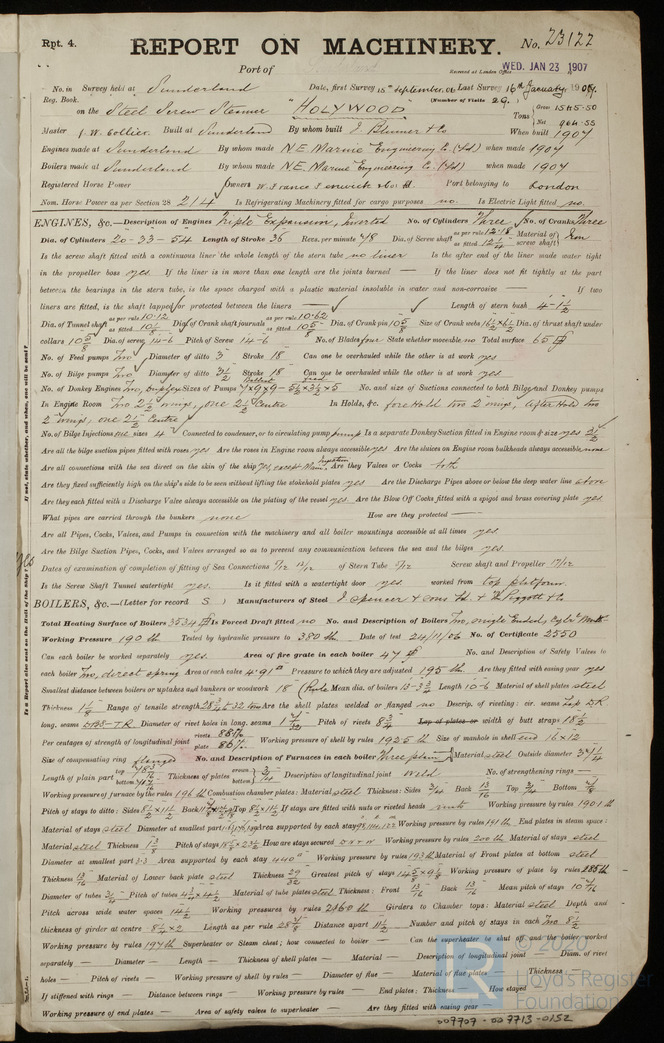 Rpt. 4.
REPORT ON MACHINERY.
No. 23122
Port of
Received at London Office WED. JAN 23 1907
No. in Survey held at Sunderland Date, first Survey 15th September, 06 Last Survey 16th January 1907
Reg. Book. (Number of Visits 29.)
on the Steel Screw Steamer "HOLYWOOD" Tons Gross 1545.50 Net 964.55
Master J. W. Collier. Built at Sunderland By whom built J. Blumer & Co When built 1907
Engines made at Sunderland By whom made N.E. Marine Engineering Co. (Ltd) when made 1907
Boilers made at Sunderland By whom made N.E. Marine Engineering Co. (Ltd) when made 1907
Registered Horse Power Owners W. France Fenwick & Co. Ltd Port belonging to London
Nom. Horse Power as per Section 28 214 Is Refrigerating Machinery fitted for cargo purposes no. Is Electric Light fitted no.
ENGINES, &c.—Description of Engines Triple Expansion, Inverted No. of Cylinders Three No. of Cranks Three
Dia. of Cylinders 20-33-54 Length of Stroke 36 Revs. per minute 78 Dia. of Screw shaft as per rule as fitted Material of screw shaft Iron
Is the screw shaft fitted with a continuous liner the whole length of the stern tube no liner Is the after end of the liner made water tight
in the propeller boss yes If the liner is in more than one length are the joints burned — If the liner does not fit tightly at the part
between the bearings in the stern tube, is the space charged with a plastic material insoluble in water and non-corrosive — If two
liners are fitted, is the shaft lapped or protected between the liners — Length of stern bush 4-1½
Dia. of Tunnel shaft as per rule 10.12 as fitted 10⅝ Dia. of Crank shaft journals as per rule 10.62 as fitted 10⅝ Dia. of Crank pin 10⅝ Size of Crank webs 16½x6½ Dia. of thrust shaft under
collars 10⅝ Dia. of screw 14-6 Pitch of Screw 14-6 No. of Blades four State whether moveable no Total surface 65
No. of Feed pumps Two Diameter of ditto 3 Stroke 18 Can one be overhauled while the other is at work yes
No. of Bilge pumps Two Diameter of ditto 3½ Stroke 18 Can one be overhauled while the other is at work yes
No. of Donkey Engines Two, Duplex Sizes of Pumps Ballast 7x9x9 - Feed 5½x3½x5 No. and size of Suctions connected to both Bilge and Donkey pumps
In Engine Room Two 2½ wings, one 2½ Centre In Holds, &c. fore Hold two 2 wings, After Hold two
2 wings, one 2½ Centre
No. of Bilge Injections one sizes 4 Connected to condenser, or to circulating pump pump Is a separate Donkey Suction fitted in Engine room & size yes 2½
Are all the bilge suction pipes fitted with roses yes Are the roses in Engine room always accessible yes Are the sluices on Engine room bulkheads always accessible none
Are all connections with the sea direct on the skin of the ship yes, except Main Injection Are they Valves or Cocks both
Are they fixed sufficiently high on the ship's side to be seen without lifting the stokehold plates yes Are the Discharge Pipes above or below the deep water line above
Are they each fitted with a Discharge Valve always accessible on the plating of the vessel yes Are the Blow Off Cocks fitted with a spigot and brass covering plate yes
What pipes are carried through the bunkers none How are they protected —
Are all Pipes, Cocks, Valves, and Pumps in connection with the machinery and all boiler mountings accessible at all times yes
Are the Bilge Suction Pipes, Cocks, and Valves arranged so as to prevent any communication between the sea and the bilges yes.
Dates of examination of completion of fitting of Sea Connections of Stern Tube Screw shaft and Propeller 17/12
Is the Screw Shaft Tunnel watertight yes. Is it fitted with a watertight door yes worked from top platform
BOILERS, &c.—(Letter for record S.) Manufacturers of Steel J. Spencer & Sons Ld. & Th Piggott & Co
Total Heating Surface of Boilers 3534 Is Forced Draft fitted no No. and Description of Boilers Two, single Ended, Cyl Mult.
Working Pressure 190 lb Tested by hydraulic pressure to 380 lb Date of test 24/11/06 No. of Certificate 2550
Can each boiler be worked separately yes. Area of fire grate in each boiler 47 No. and Description of Safety Valves to
each boiler Two, direct spring Area of each valve 4.91 Pressure to which they are adjusted 195 lb Are they fitted with easing gear yes
Smallest distance between boilers or uptakes and bunkers or woodwork 18 Mean dia. of boilers 13-3 Length 10-6 Material of shell plates steel
Thickness 1⅛ Range of tensile strength Are the shell plates welded or flanged no Descrip. of riveting: cir. seams Lap DR
long. seams DBS-TR Diameter of rivet holes in long. seams Pitch of rivets 8¾ Lap of plates or width of butt straps 18½
Per centages of strength of longitudinal joint rivets 88% plate 86% Working pressure of shell by rules 192.5 lb Size of manhole in shell end 16x12
Size of compensating ring flanged No. and Description of Furnaces in each boiler Three plain Material steel Outside diameter
Length of plain part top bottom Thickness of plates crown bottom ¾ Description of longitudinal joint Weld No. of strengthening rings —
Working pressure of furnace by the rules 196 lb Combustion chamber plates: Material steel Thickness: Sides ¾ Back 13/16 Top ¾ Bottom
Pitch of stays to ditto: Sides 8½x11½ Back Top 8½x11½ If stays are fitted with nuts or riveted heads nuts Working pressure by rules 190 lb
Material of stays steel Diameter at smallest part Area supported by each stay Working pressure by rules 191 lb End plates in steam space:
Material steel Thickness Pitch of stays How are stays secured Working pressure by rules 200 lb Material of stays steel
Diameter at smallest part 3.3 Area supported by each stay 440 Working pressure by rules 193 lb Material of Front plates at bottom steel
Thickness 13/16 Material of Lower back plate steel Thickness 29/32 Greatest pitch of stays Working pressure of plate by rules
Diameter of tubes 3¼ Pitch of tubes 4½x4½ Material of tube plates steel Thickness: Front 13/16 Back 13/16 Mean pitch of stays
Pitch across wide water spaces 14½ Working pressures by rules Girders to Chamber tops: Material steel Depth and
thickness of girder at centre 8½x2 Length as per rule Distance apart 11½ Number and pitch of stays in each Two 8½
Working pressure by rules 197 lb Superheater or Steam chest; how connected to boiler — Can the superheater be shut off and the boiler worked
separately — Diameter — Length — Thickness of shell plates — Material — Description of longitudinal joint — Diam. of rivet
holes — Pitch of rivets — Working pressure of shell by rules — Diameter of flue — Material of flue plates — Thickness
If stiffened with rings — Distance between rings — Working pressure by rules — End plates: Thickness — How stayed
Working pressure of end plates — Area of safety valves to superheater — Are they fitted with easing gear —
© 2020
Lloyd's Register
Foundation
007707-007713-0152
If not, state whether, and when, one will be sent?
Is a Report also sent on the Hull of the ship?
yes